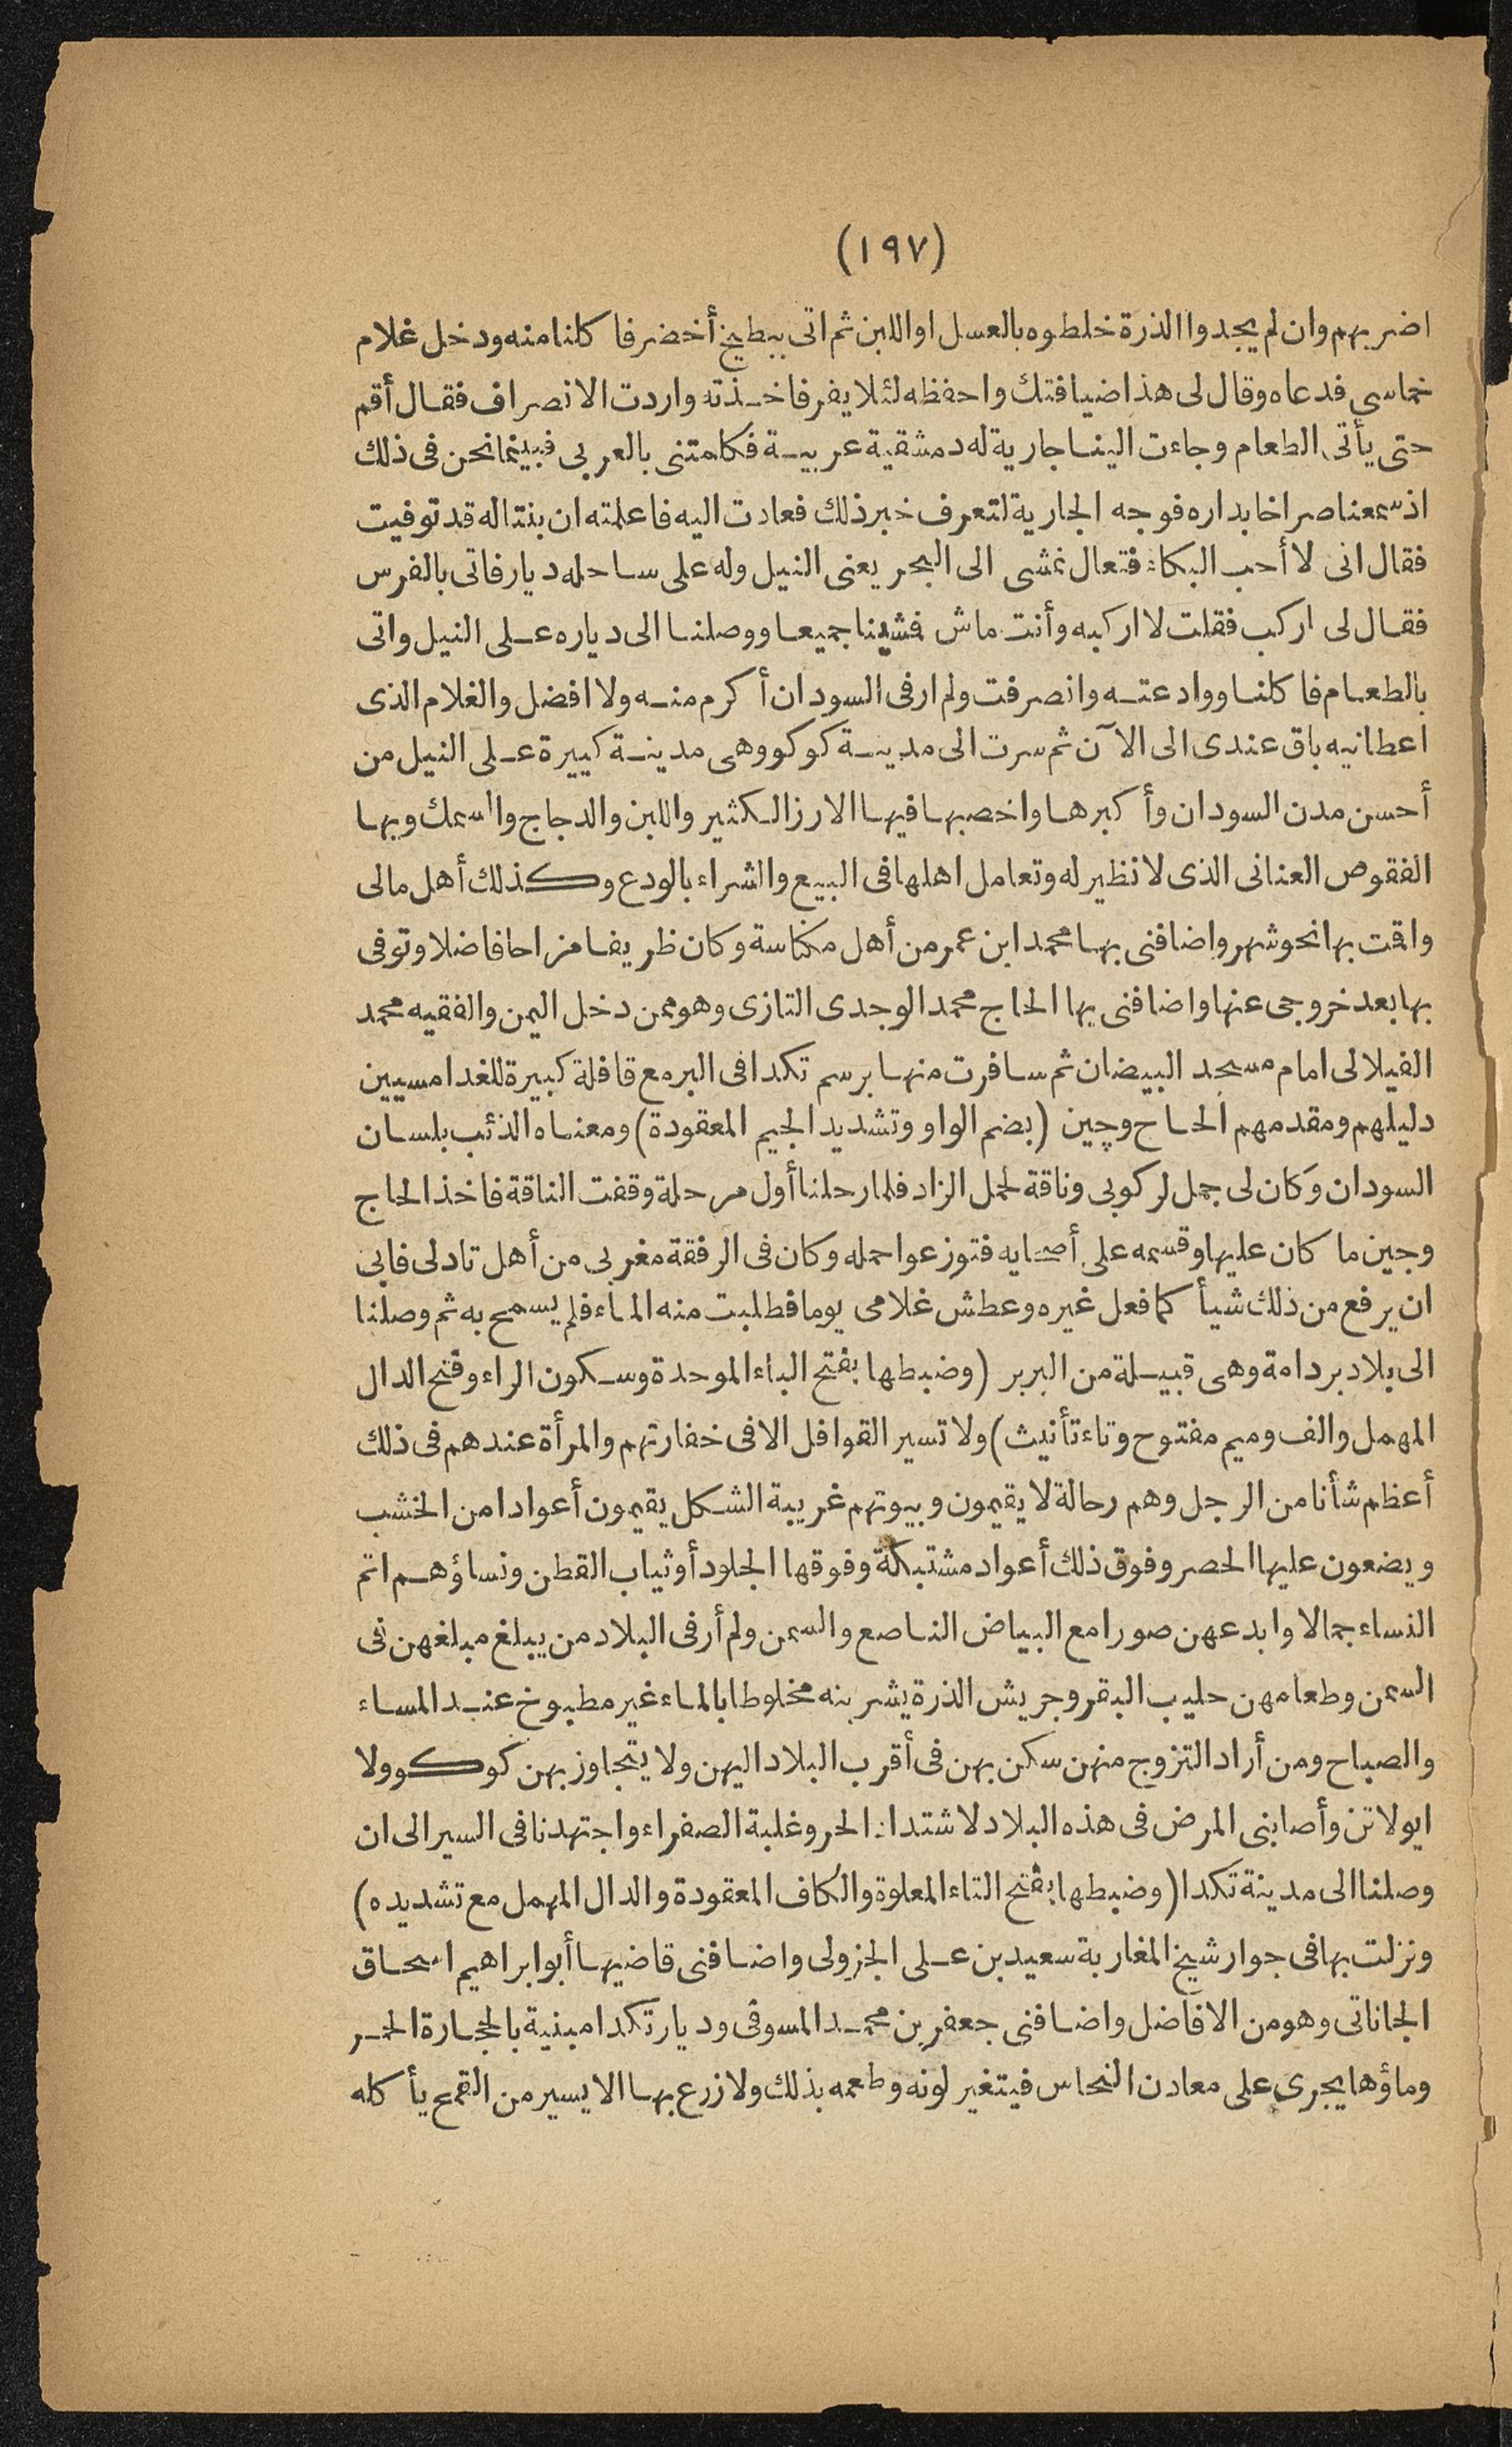 (١٩٧)
اضر بهم وان لم يجدوا الذرة خلطوه بالعسل او اللبن ثم اتى ببطيخ أخضر فاكلنا منه ودخل غلام
خماسي فدعاه وقال لى هذا ضيافتك واحفظه لئلا يفر فاخذته واردت الانصراف فقال أقم
حتى يأتى الطعام وجاءت الينا جارية له دمشقية عربية فكلمتنى بالعربى فبينما نحن فى ذلك
اذ سمعنا صراخا بداره فوجه الجارية لتعرف خبر ذلك فعادت اليه فاعلمته ان بنتا له قد توفيت
فقال انى لا أحب البكاء فتعال نمشى الى البحر يعنى النيل وله على ساحله ديار فاتى بالفرس
فقال لى اركب فقلت لا اركبه وأنت ماش فمشينا جميعا ووصلنا الى دياره على النيل واتى
بالطعام فاكلنا ووادعته وانصرفت ولم ار فى السودان أكرم منه ولا افضل والغلام الذى
اعطانيه باق عندى الى الآن ثم سرت الى مدينة كوكو وهى مدينة كبيرة على النيل من
أحسن مدن السودان وأكبرها واخصبها فيها الارز الكثير واللبن والدجاج والسمك وبها
الفقوص العنانى الذى لا نظير له وتعامل اهلها فى البيع والشراء بالودع وكذلك أهل مالى
واقمت بها نحو شهر واضافنى بها محمد ابن عمر من أهل مكناسة وكان ظريفا مزاحا فاضلا وتوفى
بها بعد خروجى عنها واضافنى بها الحاج محمد الوجدى التازى وهو ممن دخل اليمن والفقيه محمد
الفيلالى امام مسجد البيضان ثم سافرت منها برسم تكدا فى البر مع قافلة كبيرة للغدامسيين
دليلهم ومقدمهم الحاج وچين (بضم الواو وتشديد الجيم المعقودة) ومعناه الذئب بلسان
السودان وكان لى جمل لركوبى وناقة لحمل الزاد فلما رحلنا أول مرحلة وقفت الناقة فاخذ الحاج
وجين ما كان عليها وقسمه على أصحابه فتوزعوا حمله وكان فى الرفقة مغربى من أهل تادلى فابى
ان يرفع من ذلك شيأ كما فعل غيره وعطش غلامى يوما فطلبت منه الماء فلم يسمح به ثم وصلنا
الى بلاد بردامة وهى قبيلة من البربر (وضبطها بفتح الباء الموحدة وسكون الراء وفتح الدال
المهمل والف وميم مفتوح وتاء تأنيث) ولا تسير القوافل الا فى خفارتهم والمرأة عندهم فى ذلك
أعظم شأنا من الرجل وهم رحالة لا يقيمون وبيوتهم غريبة الشكل يقيمون أعوادا من الخشب
ويضعون عليها الحصر وفوق ذلك أعواد مشتبكة وفوقها الجلود أو ثياب القطن ونساؤهم اتم
النساء جمالا وابدعهن صورا مع البياض الناصع والسمن ولم أر فى البلاد من يبلغ مبلغهن فى
السمن وطعامهن حليب البقر وجريش الذرة يشربنه مخلوطا بالماء غير مطبوخ عند المساء
والصباح ومن أراد التزوج منهن سكن بهن فى أقرب البلاد اليهن ولا يتجاوز بهن كوكو ولا
ايولاتن وأصابنى المرض فى هذه البلاد لاشتداد الحر وغلبة الصفراء واجتهدنا فى السير الى ان
وصلنا الى مدينة تكدا (وضبطها بفتح التاء المعلوة والكاف المعقودة والدال المهمل مع تشديده)
ونزلت بها فى جوار شيخ المغاربة سعيد بن على الجزولى واضافنى قاضيها أبو ابراهيم اسحاق
الجاناتى وهو من الافاضل واضافنى جعفر بن محمد المسوفى وديار تكدا مبنية بالحجارة الحمر
وماؤها يجرى على معادن النحاس فيتغير لونه وطعمه بذلك ولا زرع بها الا يسير من القمح يأكله